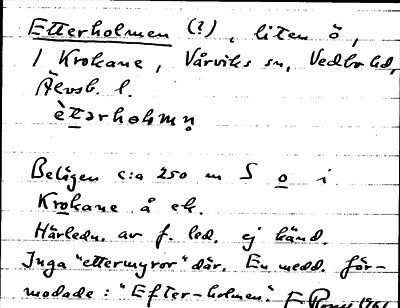 Etterholmen (?), liten ö,
i Krokane, Vårviks sn, Vedbo hd,
Älvsb. l.
ètterhòlmn̥
Belägen c:a 250 m S o i
Krokane å ek.
Härledn. av f. led. ej känd.
Inga "ettermyror" där. En medd. för-
modade: "Efter-holmen".